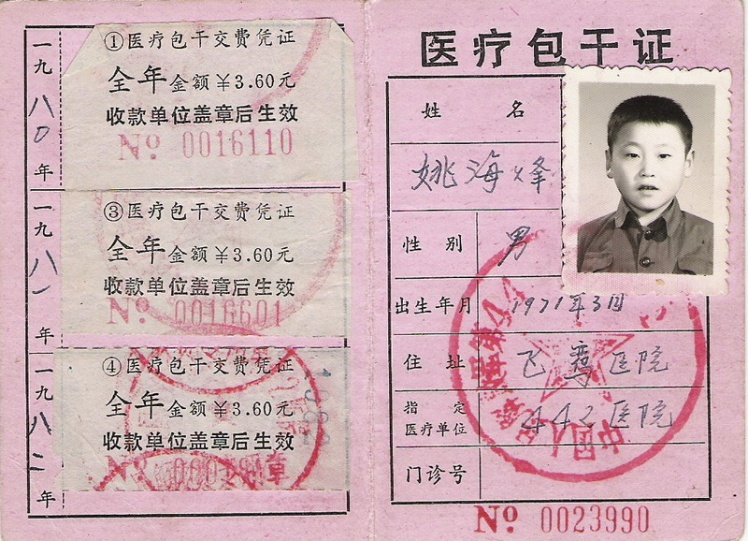 一九八〇年
①医疗包干交费凭证
全年金额￥3.60元
收款单位盖章后生效
Nº 0016110
一九八一年
③医疗包干交费凭证
全年金额￥3.60元
收款单位盖章后生效
Nº 0016601
一九八二年
④医疗包干交费凭证
全年金额￥3.60元
收款单位盖章后生效
Nº
1982
医疗包干证
姓名
姚海烽
性别 男
出生年月 1971年3月
住址 飞鸾医院
指定医疗单位 442医院
门诊号
Nº 0023990
中国人民